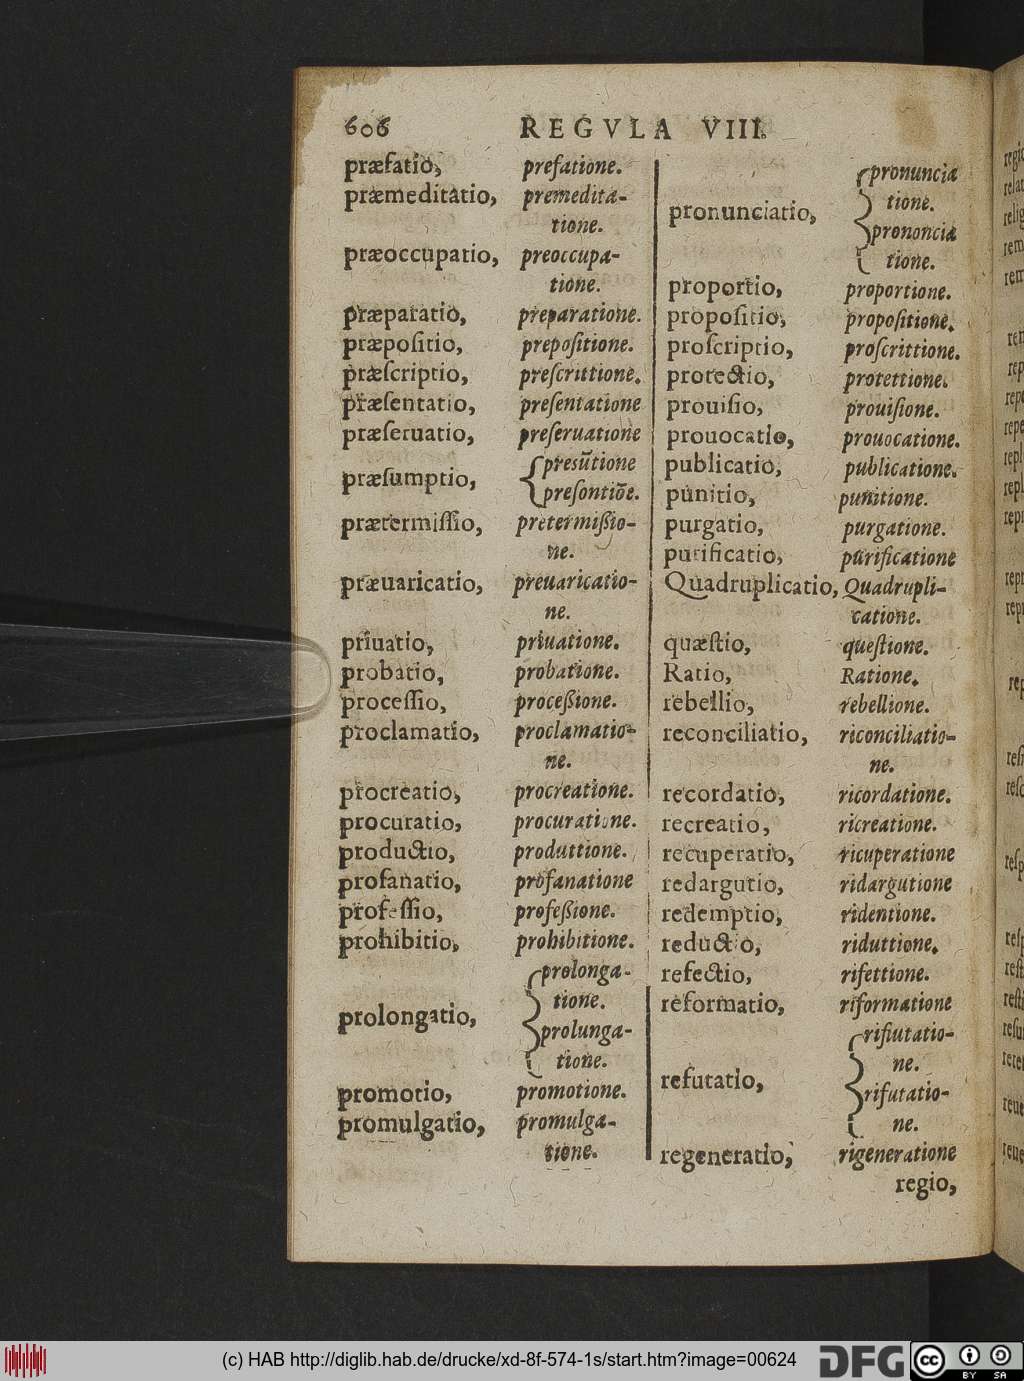 606 REGVLA VIII.
præfatio, prefatione.
præmeditatio, premedita-
tione.
præoccupatio, preoccupa-
tione.
præparatio, preparatione.
præpositio, prepositione.
præſcriptio, preſcrittione.
præſentatio, preſentatione
præſeruatio, preſeruatione
præſumptio, presūtione
preſontiōe.
prætermiſſio, pretermißio-
ne.
præuaricatio, preuaricatio-
ne.
priuatio, priuatione.
probatio, probatione.
proceſſio, proceßione.
proclamatio, proclamatio-
ne.
procreatio, procreatione.
procuratio, procuratione.
productio, produttione.
profanatio, profanatione
profeſſio, profeßione.
prohibitio, prohibitione.
prolongatio, prolonga-
tione.
prolunga-
tione.
promotio, promotione.
promulgatio, promulga-
tione.
pronunciatio, pronuncia
tione.
prononcia
tione.
proportio, proportione.
propoſitio, propoſitione.
proſcriptio, proſcrittione.
protectio, protettione.
prouiſio, prouiſione.
prouocatio, prouocatione.
publicatio, publicatione.
punitio, punitione.
purgatio, purgatione.
purificatio, purificatione
Quadruplicatio, Quadrupli-
catione.
quæſtio, queſtione.
Ratio, Ratione.
rebellio, rebellione.
reconciliatio, riconciliatio-
ne.
recordatio, ricordatione.
recreatio, ricreatione.
recuperatio, ricuperatione
redargutio, ridargutione
redemptio, ridentione.
reductio, riduttione.
refectio, rifettione.
reformatio, riformatione
refutatio, rifiutatio-
ne.
rifutatio-
ne.
regeneratio, rigeneratione
regio,
(c) HAB http://diglib.hab.de/drucke/xd-8f-574-1s/start.htm?image=00624
DFG
cc BY SA